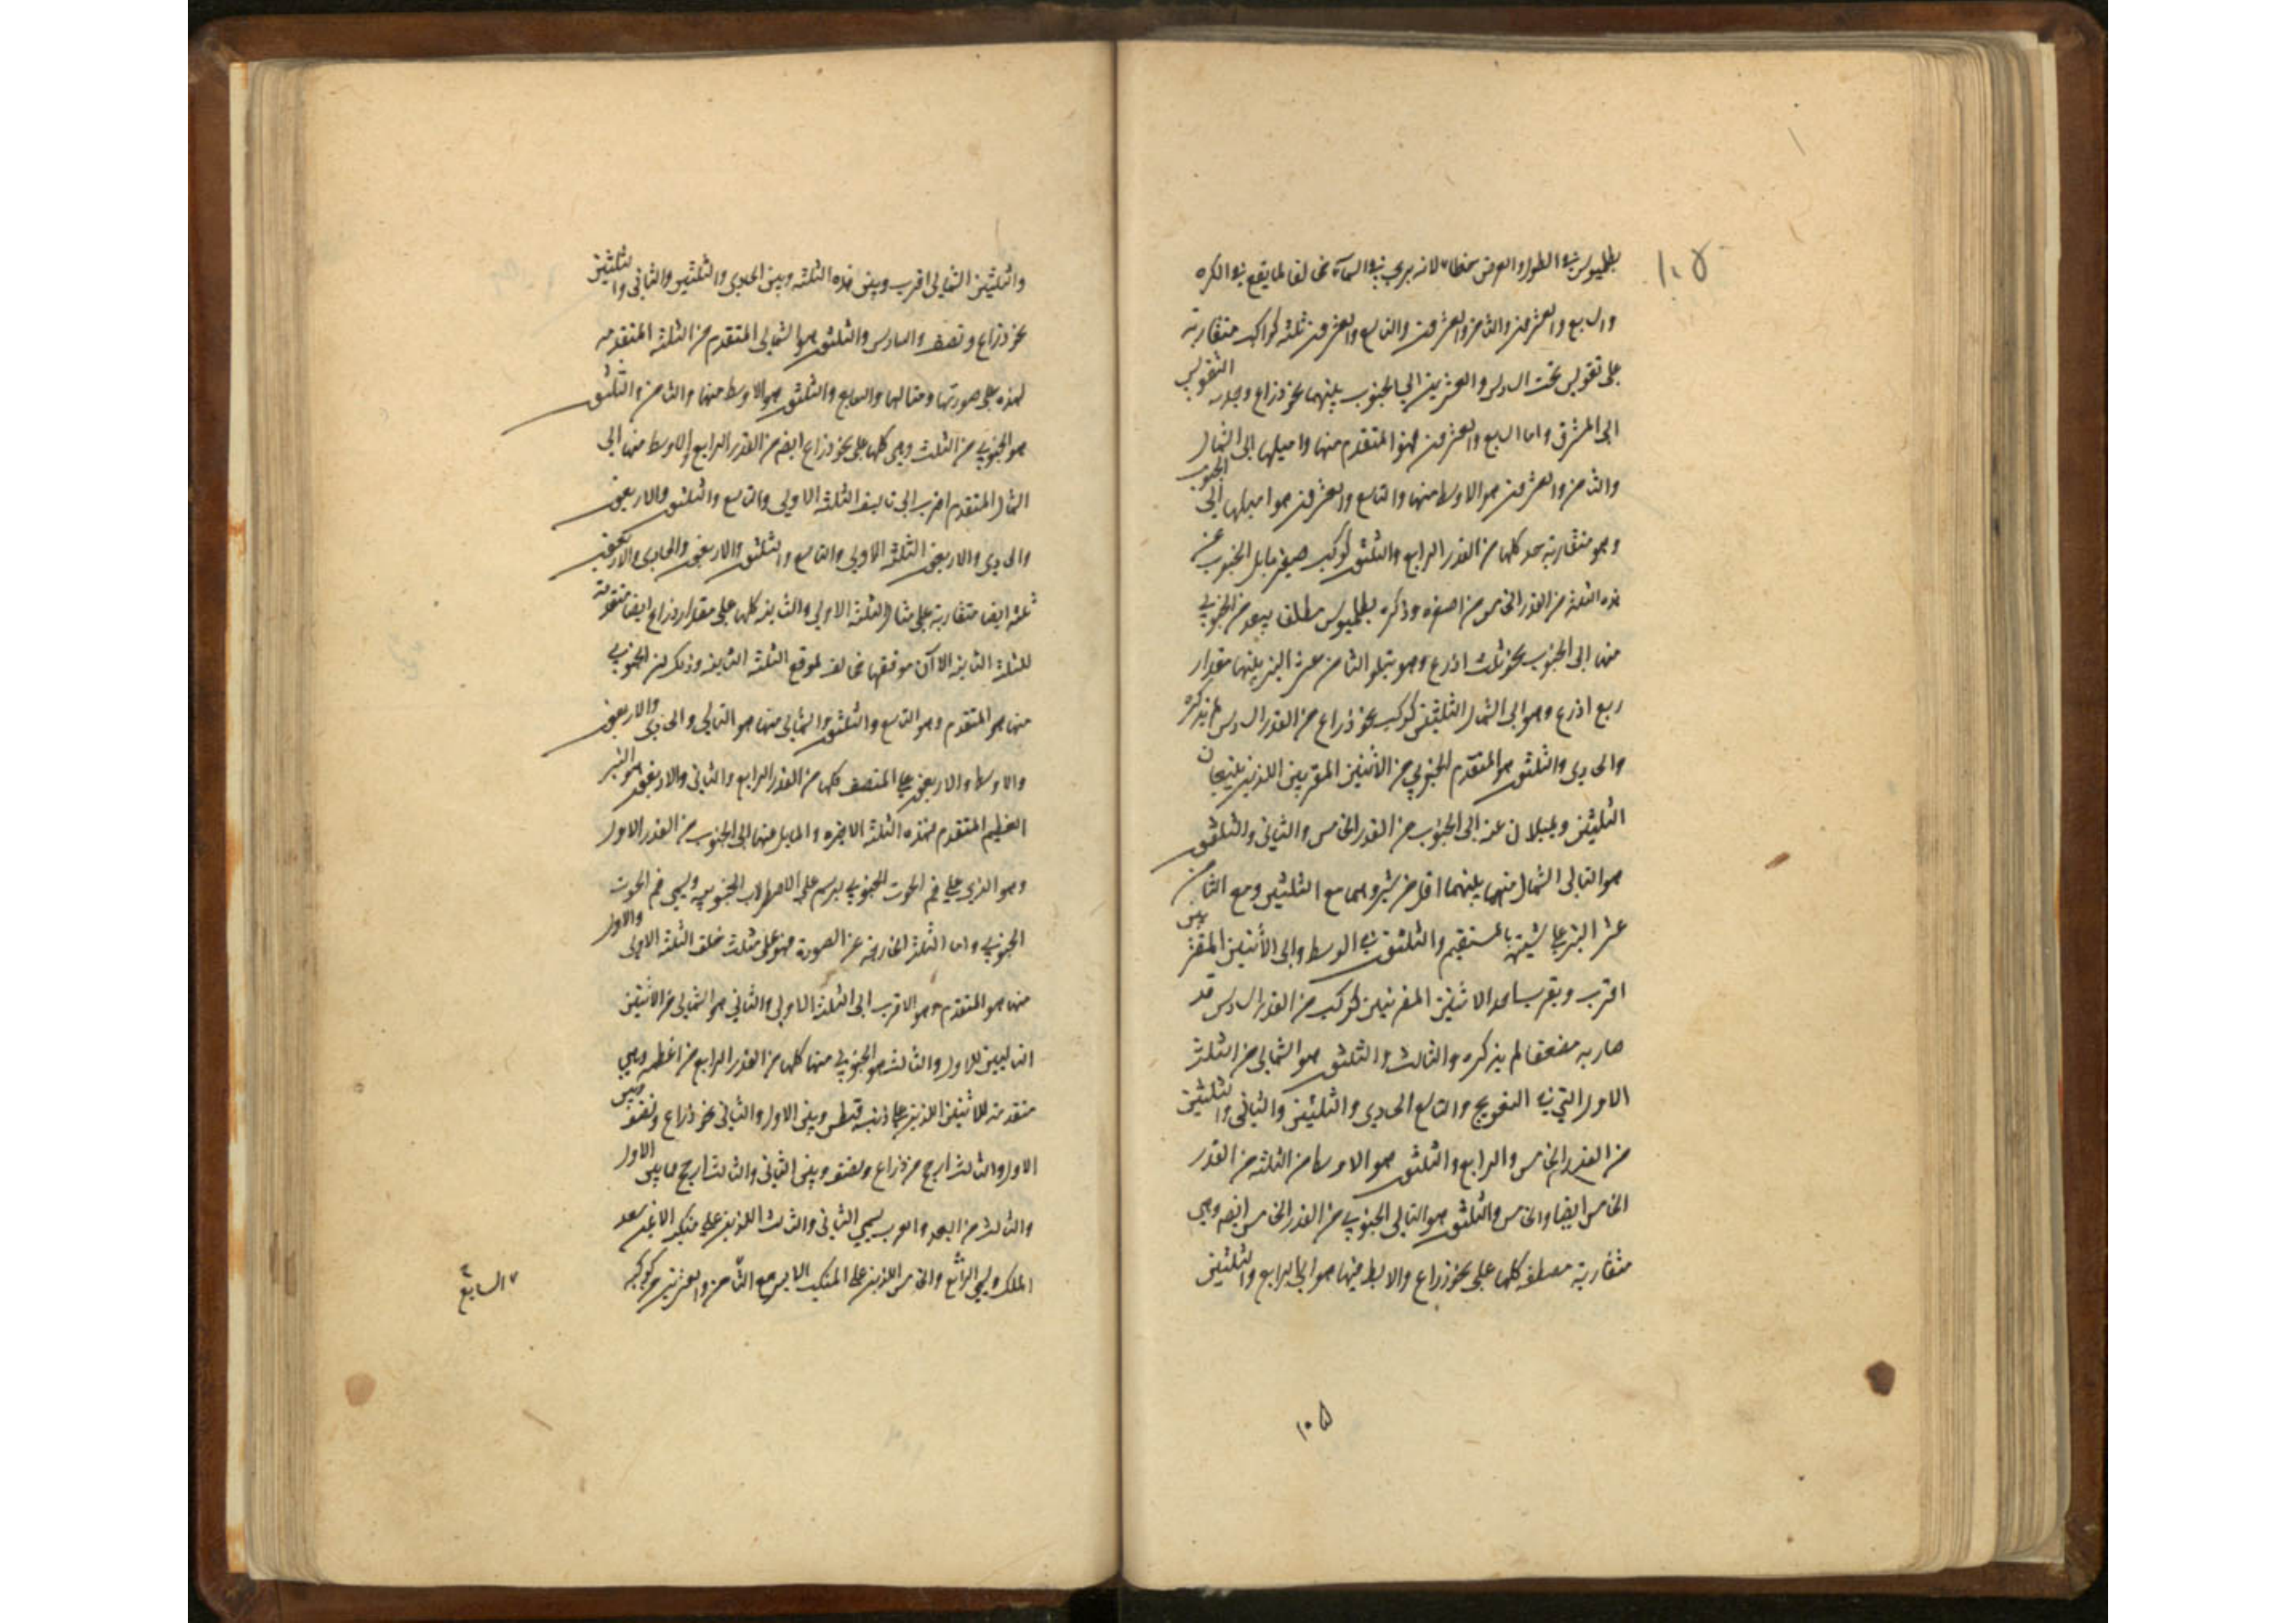 ١٠٥
بطلميوس في الطول والعرض خطا لانه يري في السمآء مخالفا لما يقع في الكره
والسابع والعشرون والثامن والعشرون والتاسع والعشرون ثلثة كواكب متقاربة
على تقويس تحت السادس والعشرين الى الجنوب بينهما نحو ذراع وحدبه التقويس
الى المشرق واما السابع والعشرون فهو المتقدم منها واميلها الى الشمال
والثامن والعشرون هو الاوسط منها والتاسع والعشرون هو اميلها الى الجنوب
وهو متقاربة كلها من القدر الرابع والثلثون كوكب صغير مايل الجنوب عن
هذه الثلثة من القدر الخامس من اصغره وذكره بطلميوس مطلقا يبعد من الجنوبي
منها الى الجنوب نحو ثلث اذرع وهو يتلو الثامن عشر النير بينهما مقدار
ربع اذرع وهو الى الشمال الثلثين كوكب نحو ذراع من القدر السادس لم يذكره
والحادي والثلثون هو المتقدم الجنوبي من الاثنين المقتربين اللذين يتبعان
الثلثين ويميلان عنه الى الجنوب من القدر الخامس والثاني والثلثون
هو التالي الشمال منهما بينهما اقل من شبر وهما مع الثلثين ومع الثامن
عشر النير على مستقيم والثلثون في الوسط والى الاثنين المقتربين
اقرب ويقرب احد الاثنين المقتربين كوكب من القدر السادس قد
صار به مضعفا لم يذكره والثالث والثلثون هو الشمالي من الثلثة
الاول التي في التعويج والتابع الحادي والثلثين والثاني والثلثين
من القدر الخامس والرابع والثلثون هو الاوسط من الثلثة من القدر
الخامس ايضا والخامس والثلثون هو التالي الجنوبي من القدر الخامس ايضه وهي
متقاربة مصطفه كلها على نحو ذراع والاوسط منها هو الى الرابع والثلثين
١٠٥
والثلثين الشمالي اقرب وبين هذه الثلثه وبين الحادي والثلثين والثاني والثلثين
نحو ذراع ونصف والسادس والثلثون هو الشمالي المتقدم من الثلثة المتقدمه
لهذه على صورتها ومثالها والسابع والثلثون هو الاوسط منها والثامن والثلثون
هو الجنوبي من الثلث وهي كلها على نحو ذراع ايضه من القدر الرابع والاوسط منها الى
الشمال المتقدم اقرب الى تاليف الثلثة الاولى والتاسع والثلثون والاربعون
والحادي والاربعون الثلثة الاولى والتاسع والثلثون والاربعون والحادي والاربعون
ثلثه ايضا متقاربة على مثال الثلثة الاولى والثانيه كلها على مقدار ذراع ايضا متقدمة
للثلثة الثانيه الا ان موقعها مخالف لموقع الثلثة الثانيه وذلك لان الجنوبي
منها هو المتقدم وهو التاسع والثلثون والشمالي منها هو التالي والحادي والاربعون
والاوسط والاربعون على المنتصف كلها من القدر الرابع والثاني والاربعون هو النير
العظيم المتقدم لهذه الثلثة الاخيره والمايل منها الى الجنوب من القدر الاول
وهو الذي على فم الحوت الجنوبي يرسم على الاصطرلاب الجنوبيه ويسمى فم الحوت
الجنوبي واما الثلثة الخارجة عن الصورة فهو على مثلث خلف الثلثة الاولى والاول
منها هو المتقدم وهو الاقرب الى الثلثة الاولى والثاني هو الشمالي من الاثنين
التاليين للاول والثالث هو الجنوبي منها كلها من القدر الرابع من اعظمه وهي
متقدمة للاثنين اللذين على ذنب قيطس وبين الاول والثاني نحو ذراع ونصف وبين
الاول والثالث ارجح من ذراع ونصف وبين الثاني والثالث ارجح مما بين الاول
والثالث من البعد والعرب يسمي الثاني والثالث اللذين على منكبه الايمن سعد
الملك ويسمي الرابع والخامس اللذين على المنكب الايسر مع الثامن والعشرين من كوكبه
السابع